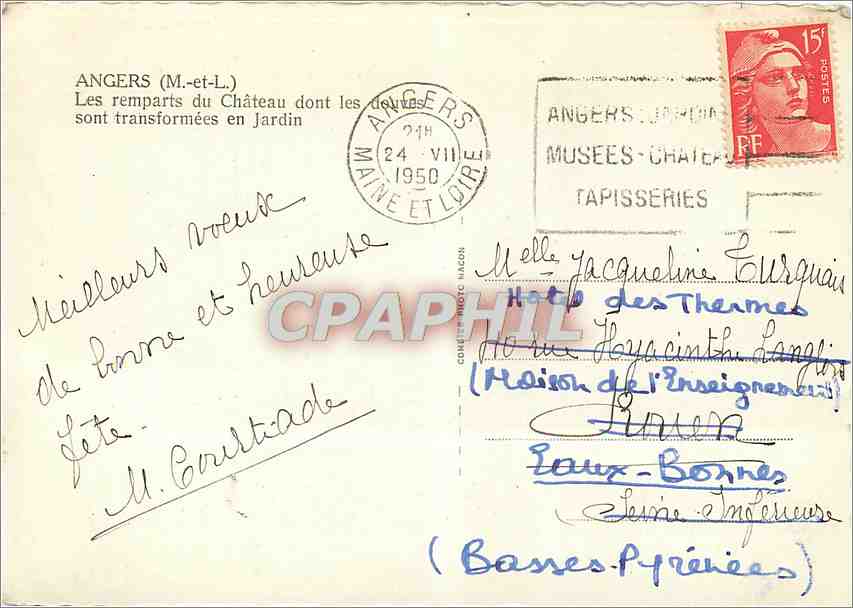 ANGERS (M.-et-L.)
Les remparts du Château dont les douves
sont transformées en Jardin
ANGERS
21H
24 · VII
1950
MAINE ET LOIRE
ANGERS·JARDIN
MUSEES-CHATEAU
TAPISSERIES
15F
POSTES
RF
Meilleurs voeux
de bonne et heureuse
fête.
M. Courtiade
COMBIER PHOTO MACON
CPAPHIL
Melle Jacqueline Turquais
Hotel des Thermes
40 rue Hyacinthe Langlois
(Maison de l'Enseignement)
Rouen
Eaux-Bonnes
Seine-Inférieure
(Basses-Pyrénées)